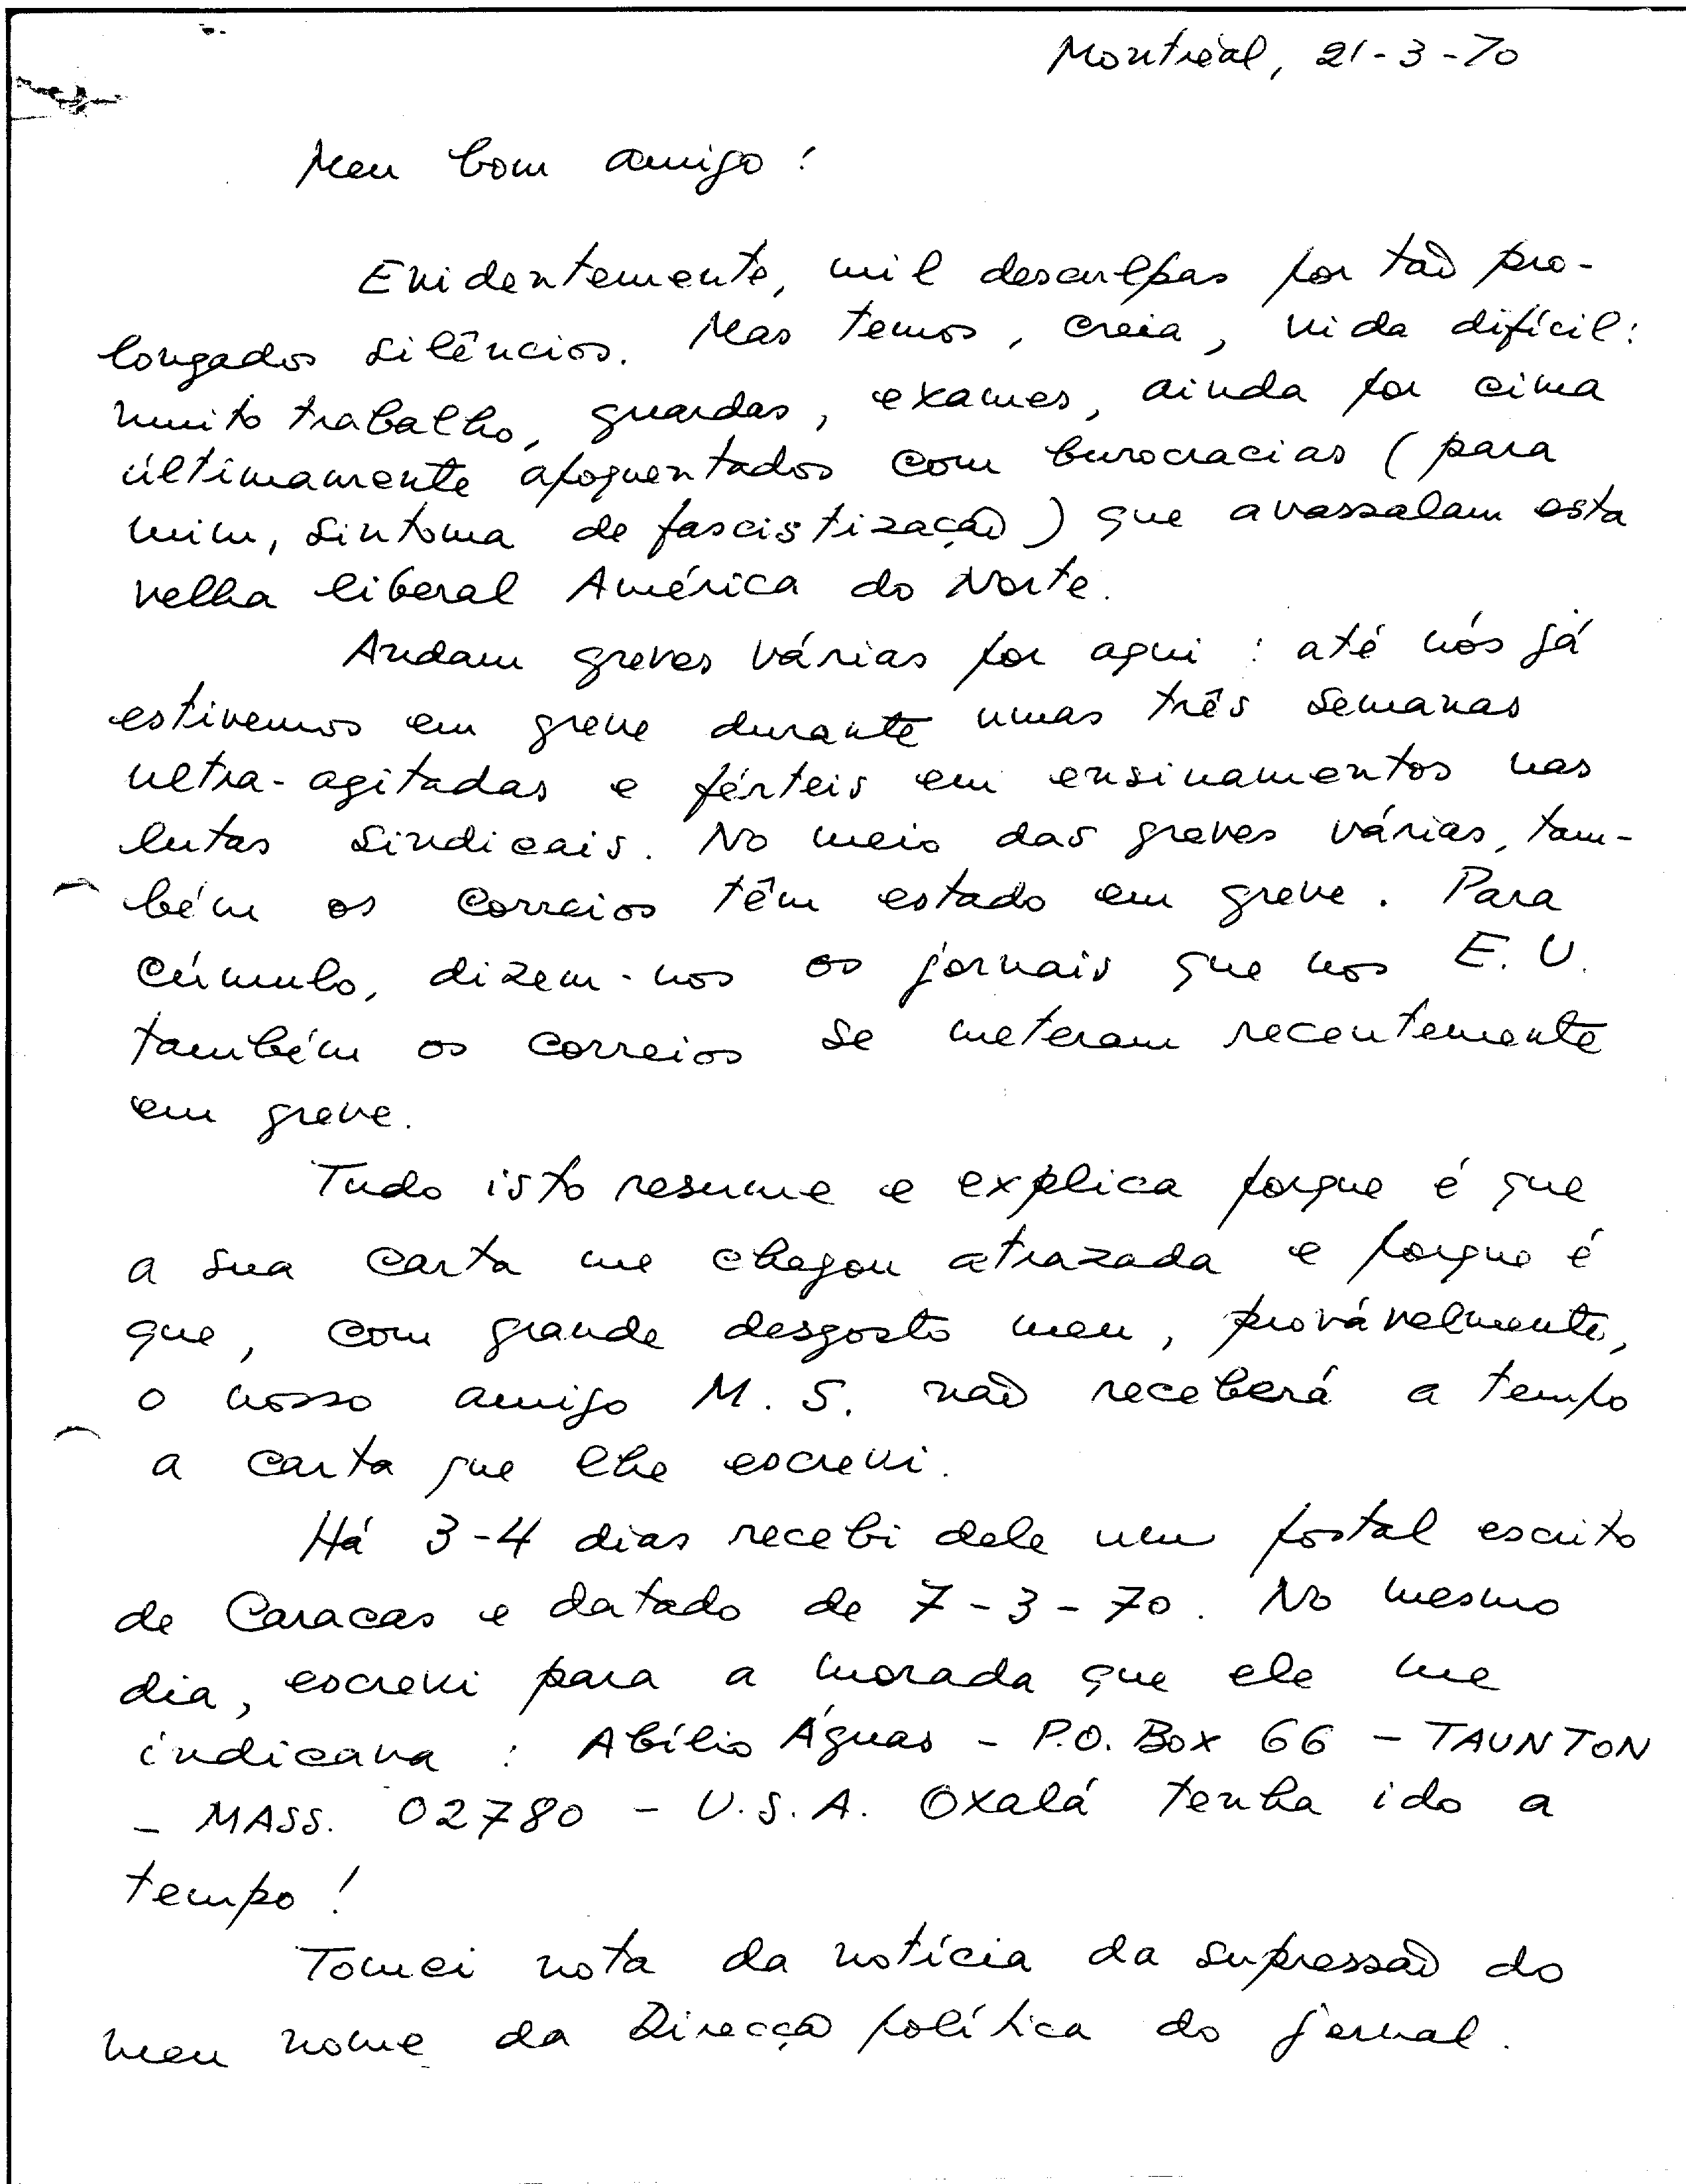 Montréal, 21-3-70
Meu bom amigo!
Evidentemente, mil desculpas por tão pro-
longados silêncios. Mas temos, creia, vida difícil:
muito trabalho, guardas, exames, ainda por cima
últimamente apoquentados com burocracias (para
mim, sintoma de fascistização) que avassalam esta
velha liberal América do Norte.
Andam greves várias por aqui: até nós já
estivemos em greve durante umas três semanas
ultra-agitadas e férteis em ensinamentos nas
lutas sindicais. No meio das greves várias, tam-
bém os correios têm estado em greve. Para
cúmulo, dizem-nos os jornais que nos E.U.
também os correios se meteram recentemente
em greve.
Tudo isto resume e explica porque é que
a sua carta me chegou atrazada e porque é
que, com grande desgosto meu, provávelmente,
o nosso amigo M. S. não receberá a tempo
a carta que lhe escrevi.
Há 3-4 dias recebi dele um postal escrito
de Caracas e datado de 7-3-70. No mesmo
dia, escrevi para a morada que ele me
indicava: Abílio Águas - P.O. Box 66 - TAUNTON
- MASS. 02780 - U.S.A. Oxalá tenha ido a
tempo!
Tomei nota da notícia da supressão do
meu nome da Direcção política do jornal.